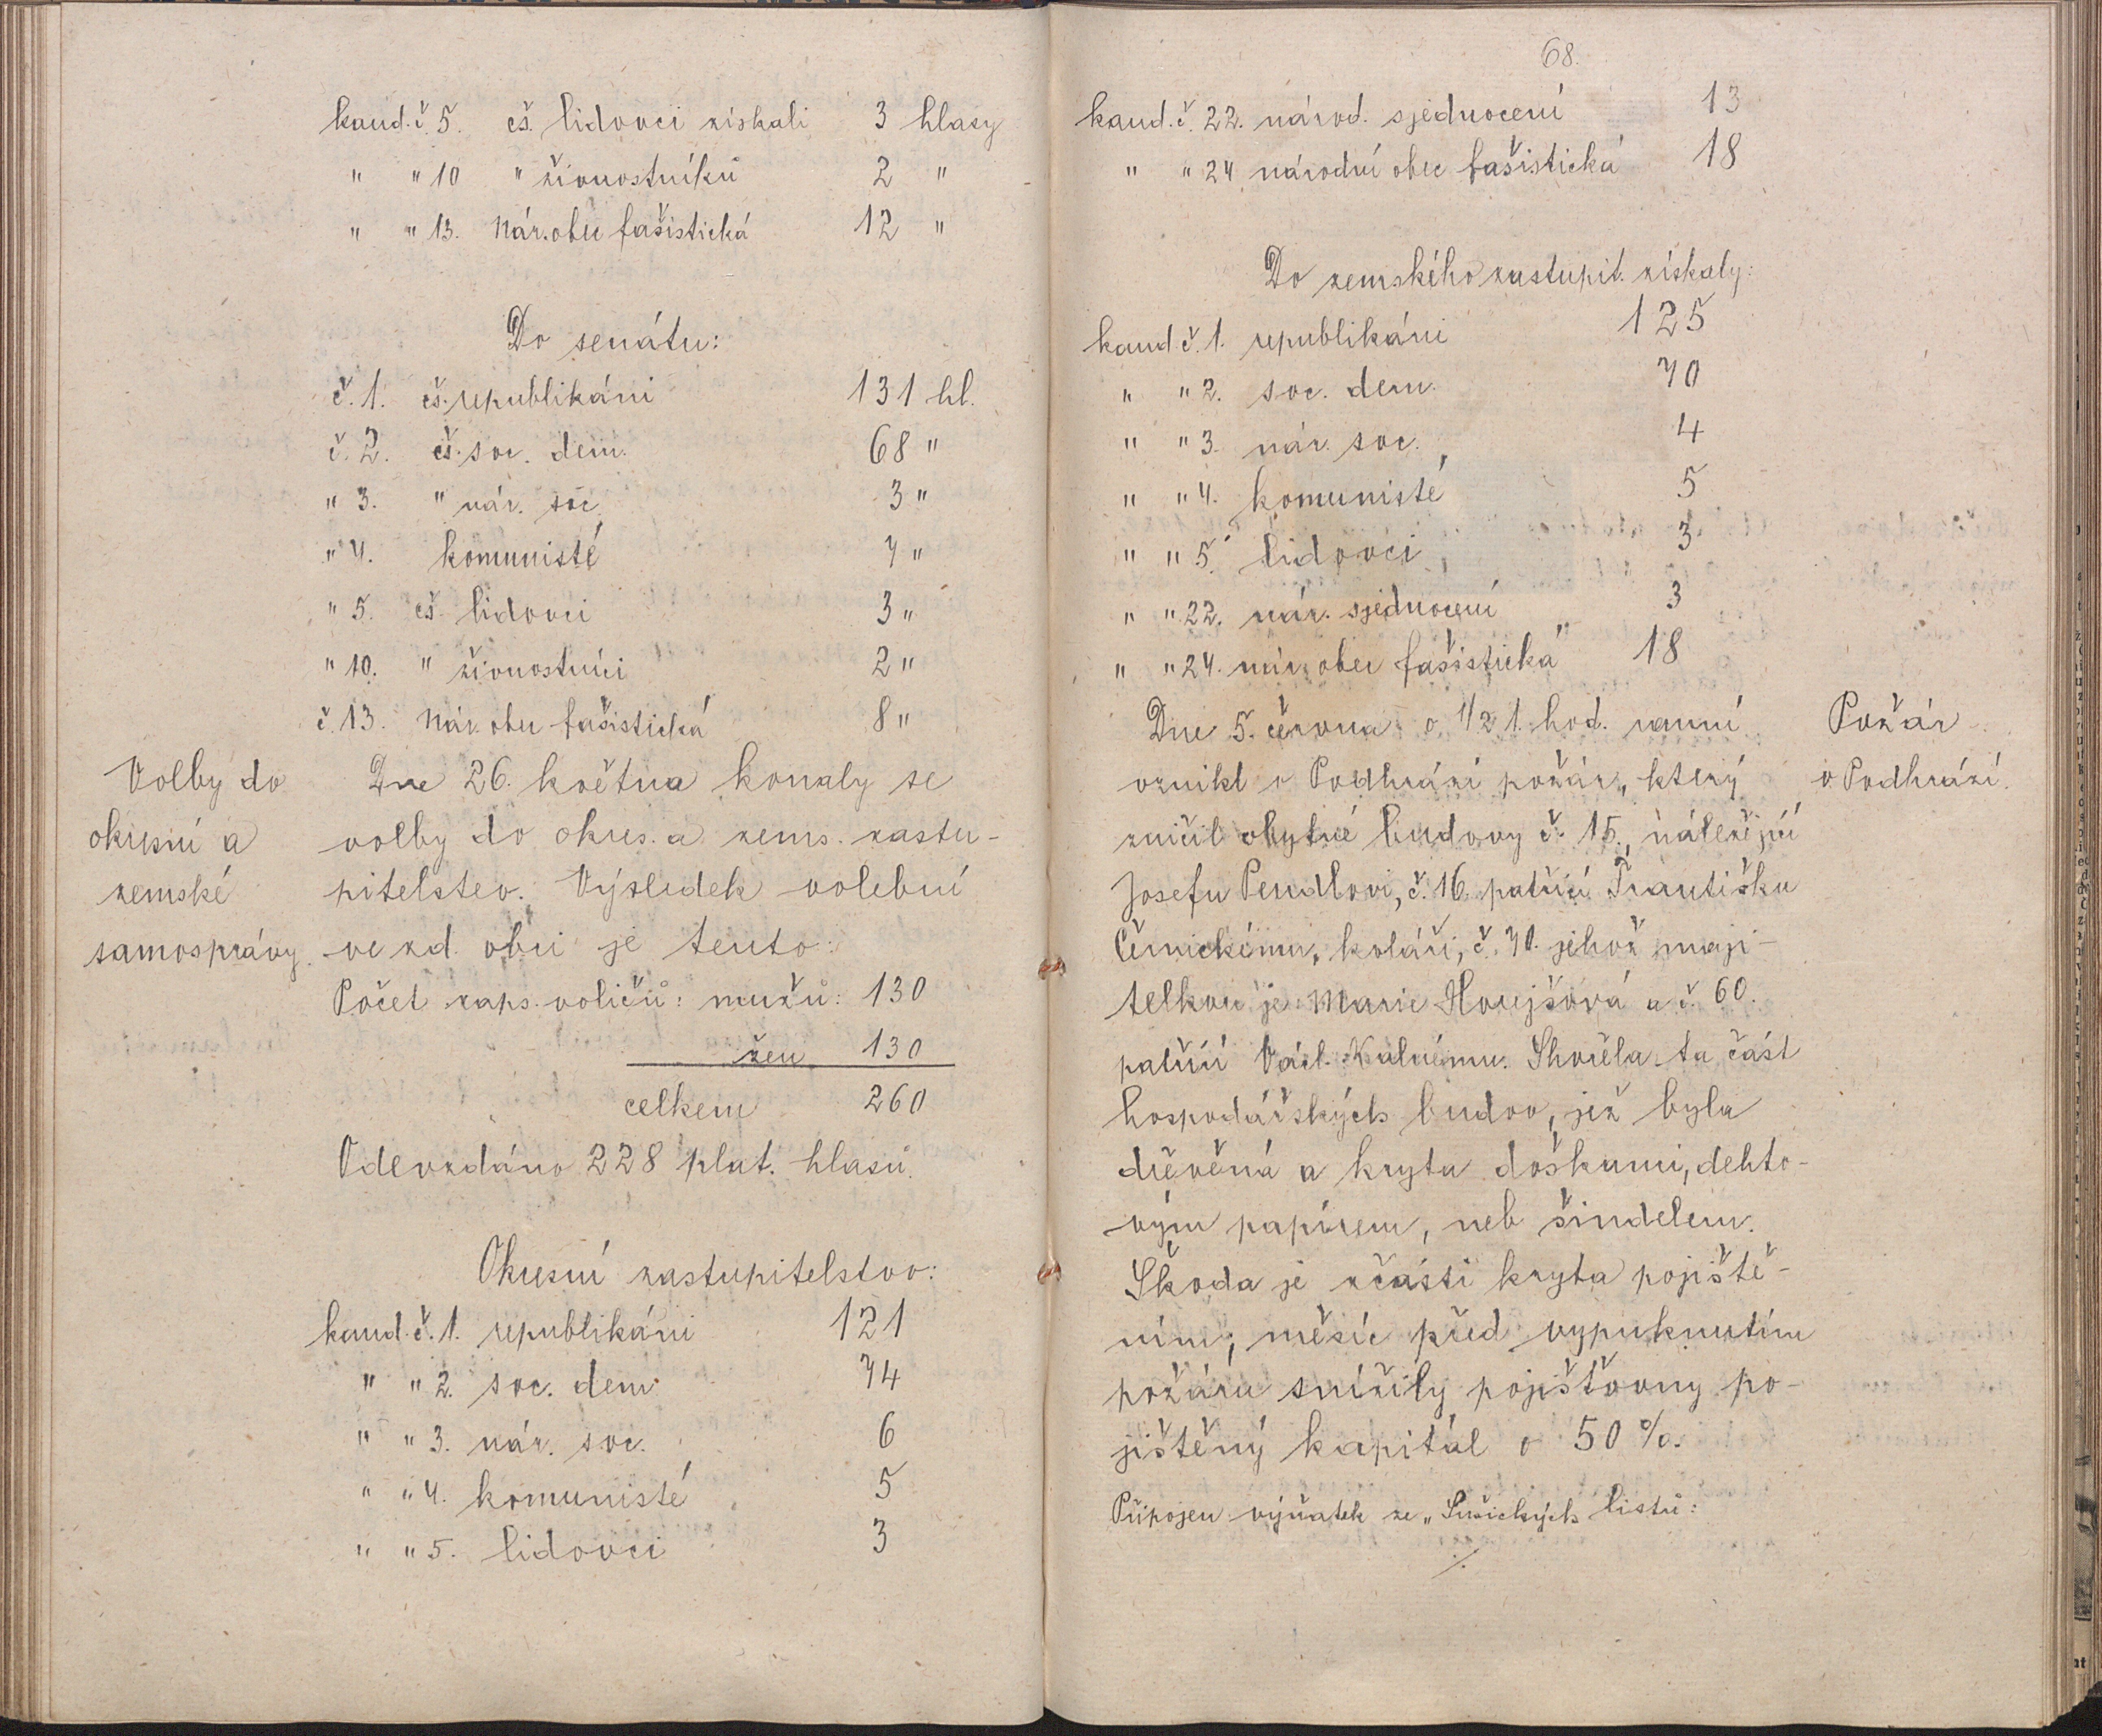 kand. č. 5. čs. lidovci získali 3 hlasy
" " 10 " živnostníků 2 "
" " 13. Nár. obec fašistická 12 "
Do senátu:
č. 1. čs. republikáni 131 hl.
č. 2. čs. soc. dem. 68 "
" 3. " nár. soc. 3 "
" 4. komunisté 7 "
" 5. čs. lidovci 3 "
" 10. " živnostníci 2 "
č. 13. Nár. obec fašistická 8 "
Volby do
okresní a
zemské
samosprávy.
Dne 26. května konaly se
volby do okres. a zems. zastu-
pitelstev. Výsledek volební
ve zd. obci je tento:
Počet zaps. voličů: mužů: 130
žen 130
celkem 260
Odevzdáno 228 plat. hlasů.
Okresní zastupitelstvo:
kand. č. 1. republikáni 121
" " 2. soc. dem. 74
" " 3. nár. soc. 6
" " 4. komunisté 5
" " 5. lidovci 3
68.
kand. č. 22. národ. sjednocení 13
" " 24 národní obec fašistická 18
Do zemského zastupit. získaly:
kand č. 1. republikáni 125
" " 2. soc. dem. 70
" " 3. nár. soc. 4
" " 4. komunisté 5
" " 5. lidovci 3
" " 22. nár. sjednocení 3
" " 24. nár. obec fašistická 18
Dne 5. června o 1/2 1. hod. ranní
vznikl v Podhrází požár, který
zničil obytné budovy č. 15., náležející
Josefu Pendlovi, č. 16. patřící Františku
Černickému, koláři, č. 70. jehož maji-
telkou je Marie Houjšová a č. 60.
patřící Václ. Kalnému. Shořela ta část
hospodářských budov, jež byla
dřevěná a kryta doškami, dehto-
vým papírem, neb šindelem.
Škoda je zčásti kryta pojiště-
ním; měsíc před vypuknutím
požáru snížily pojišťovny po-
jištěný kapitál o 50 %.
Připojen výňatek ze "Sušických listů:
./.
Požár
v Podhrází.